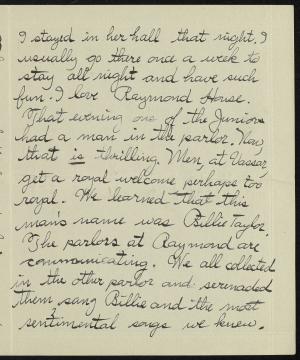 I stayed in her hall that night. I
usually go there once a week to
stay all night and have such
fun. I love Raymond House.
That evening one of the Juniors
had a man in the parlor. Now
that is thrilling. Men, at Vassar,
get a royal welcome perhaps too
royal. We learned that this
man's name was Billie Taylor.
The parlors at Raymond are
communicating. We all collected
in the other parlor and serenaded
them, sang Billie and the most
sentimental songs we knew.